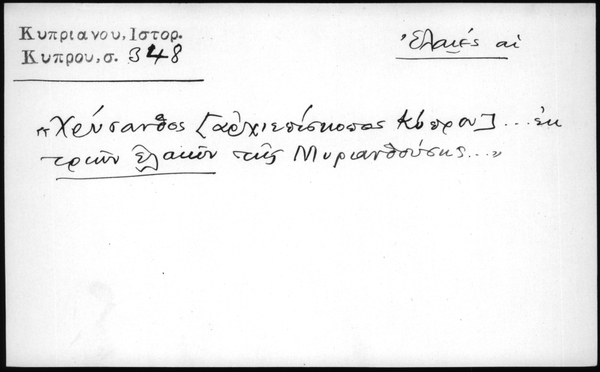 Κυπριανου, Ιστορ.
Κυπρου, σ. 348
Ἐλαιές αἱ
"Χρύσανθος [ἀρχιεπίσκοπος Κύπρου] ... ἐκ
τριῶν ἐλαιῶν τῆς Μυριανθούσης ..."